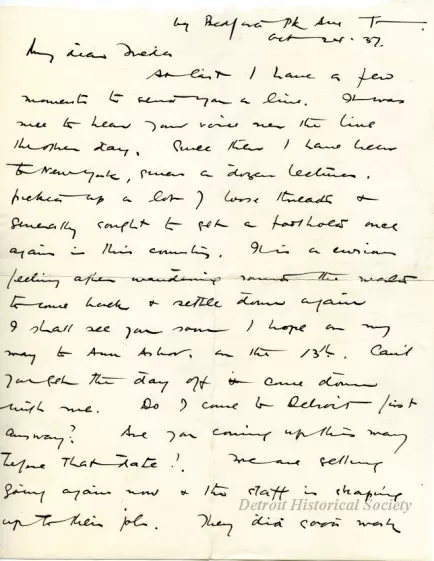 Bedford Pk Ave T
Oct 24. 37.
My dear Freda
At last I have a few
moments to send you a line. It was
nice to hear your voice over the line
the other day. Since then I have been
to New York, given a dozen lectures,
picked up a lot of loose threads &
generally sought to get a foothold once
again in this country. It is a curious
feeling after wandering round the world
to come back & settle down again
I shall see you soon I hope on my
way to Ann Arbor. on the 13th. Can't
you get the day off & come down
with me. Do I come to Detroit first
anyway? Are you coming up this way
before that date?. We are getting
going again now & the staff is shaping
up to their job. They did good work
Detroit Historical Society